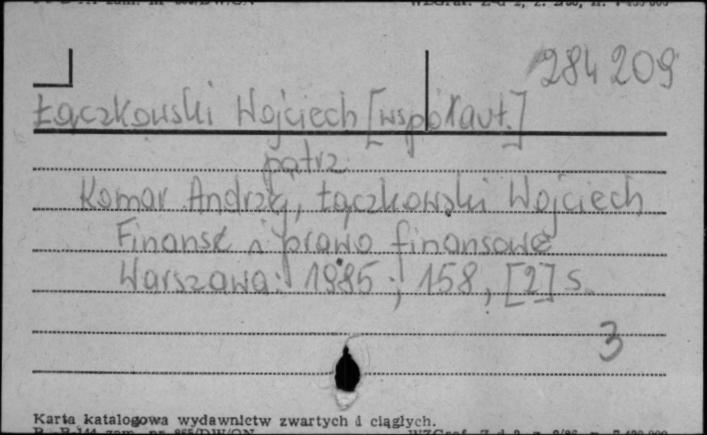 284 209
Łączkowski Wojciech [współaut.]
patrz
Komar Andrzej, Łączkowski Wojciech
Finanse i prawo finansowe
Warszawa: 1985; 158, [2] s.
3
Karta katalogowa wydawnictw zwartych i ciągłych.